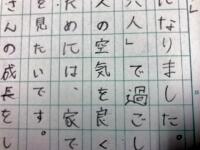 になりました。
人」で過ごし
人の空気を良く
ためには家で
みたいです。
さんの成長を